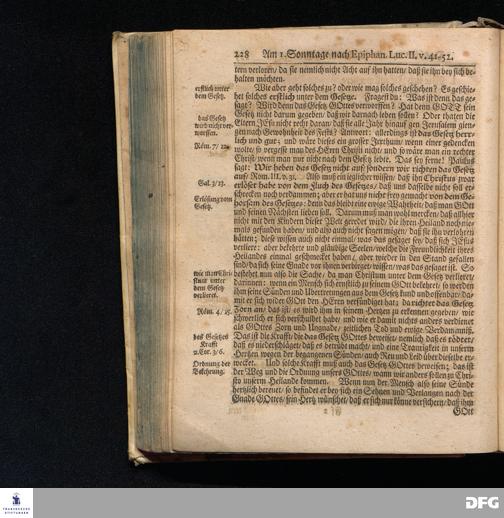 228 Am 1. Sonntage nach Epiphan. Luc. II. v. 41-52.
tern verloren/ da sie nemlich nicht Acht auf ihn hatten/ daß sie ihn bey sich be-
halten möchten.
erstlich unter
dem Gesetz.
Wie aber geht solches zu? oder wie mag solches geschehen? Es geschie-
het solches erstlich unter dem Gesetze. Fragest du: Was ist denn das ge-
sagt? Wird denn das Gesetz Gottes verworffen? Hat denn GOTT sein
Gesetz nicht darum gegeben/ daß wir darnach leben sollen? Oder thaten die
das Gesetz
wird nicht ver-
worffen.
Eltern JEsu nicht recht daran/ daß sie alle Jahr hinauf gen Jerusalem gien-
gen nach Gewohnheit des Fests? Antwort: allerdings ist das Gesetz herr-
lich und gut; und wäre dieses ein grosser Irrthum/ wenn einer gedencken
Röm. 7/ 12.
wolte/ so vergesse man des HErrn Christi nicht/ und so wäre man ein rechter
Christ/ wenn man nur nicht nach dem Gesetz lebte. Das sey ferne! Paulus
sagt: Wir heben das Gesetz nicht auf sondern wir richten das Gesetz
auf/ Röm. III. v. 31. Also muß ein jeglicher wissen/ daß ihn Christus zwar
Gal. 3/13.
erlöset habe von dem Fluch des Gesetzes/ daß uns dasselbe nicht soll er-
schrecken noch verdammen; aber er hat uns nicht frey gemacht von dem Ge-
Erlösung vom
Gesetz.
horsam des Gesetzes: denn das bleibt eine ewige Wahrheit/ daß man GOtt
und seinen Nächsten lieben soll. Darum muß man wohl mercken/ daß allhier
nicht mit den Kindern dieser Welt geredet wird/ die ihren Heiland noch nie-
mals gefunden haben/ und also auch nicht sagen mögen/ daß sie ihn verlohren
hätten; diese wissen auch nicht einmal/ was das gesaget sey/ daß sich JEsus
verliere: aber bekehrte und gläubige Seelen/ welche die Freundlichkeit ihres
Heilandes einmal geschmecket haben/ aber wieder in den Stand gefallen
sind/ da sich seine Gnade vor ihnen verbirget/ wissen/ was das gesaget ist. So
wie man Chri-
stum unter
dem Gesetz
verlieret.
bestehet nun also die Sache/ da man Christum unter dem Gesetz verlieret/
darinnen: wenn ein Mensch sich ernstlich zu seinem GOtt bekehrt/ so werden
ihm seine Sünden und Übertretungen aus dem Gesetz kund und offenbar/ da-
mit er sich wider GOtt den HErrn versündiget hat; da richtet das Gesetz
Röm. 4/ 15.
Zorn an/ das ist: es wird ihm in seinem Hertzen zu erkennen gegeben/ wie
schwerlich er sich verschuldet habe/ und wie er damit nichts anders verdienet
als GOttes Zorn und Ungnade/ zeitlichen Tod und ewige Verdammniß.
des Gesetzes
Krafft
2. Cor. 3/6.
Das ist die Krafft/ die das Gesetz GOttes beweiset/ nemlich daß es tödtet/
daß es niederschläget/ daß es betrübt macht/ und eine Traurigkeit in unserm
Hertzen wegen der begangenen Sünden/ auch Reu und Leid über dieselbe er-
Ordnung der
Bekehrung.
wecket. Und solche Krafft muß auch das Gesetz GOttes beweisen; das ist
der Weg und die Ordnung unsers GOttes/ wann wir anders sollen zu Chri-
sto unserm Heilande kommen. Wenn nun der Mensch also seine Sünde
hertzlich bereuet/ so befindet er bey sich ein Sehnen und Verlangen nach der
Gnade GOttes/ sein Hertz wünschet/ daß er sich nur könne versichern/ daß ihm
GOtt
FRANCKESCHE
STIFTUNGEN
DFG